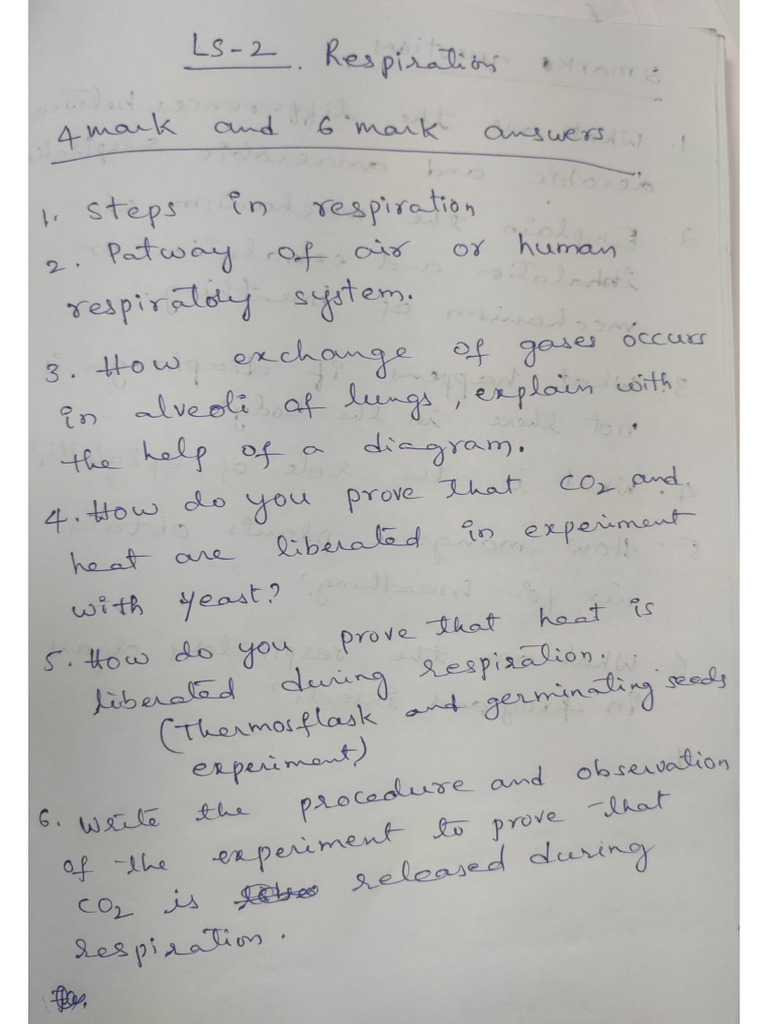 LS-2. Respiration
4 mark and 6 mark answers
1. Steps in respiration
2. Patway of air or human
respiratory system.
3. How exchange of gases occurs
in alveoli of lungs, explain with
the help of a diagram.
4. How do you prove that CO2 and
heat are liberated in experiment
with yeast?
5. How do you prove that heat is
liberated during respiration.
(Thermosflask and germinating seeds
experiment)
6. Write the procedure and observation
of the experiment to prove that
CO2 is released during
respiration.